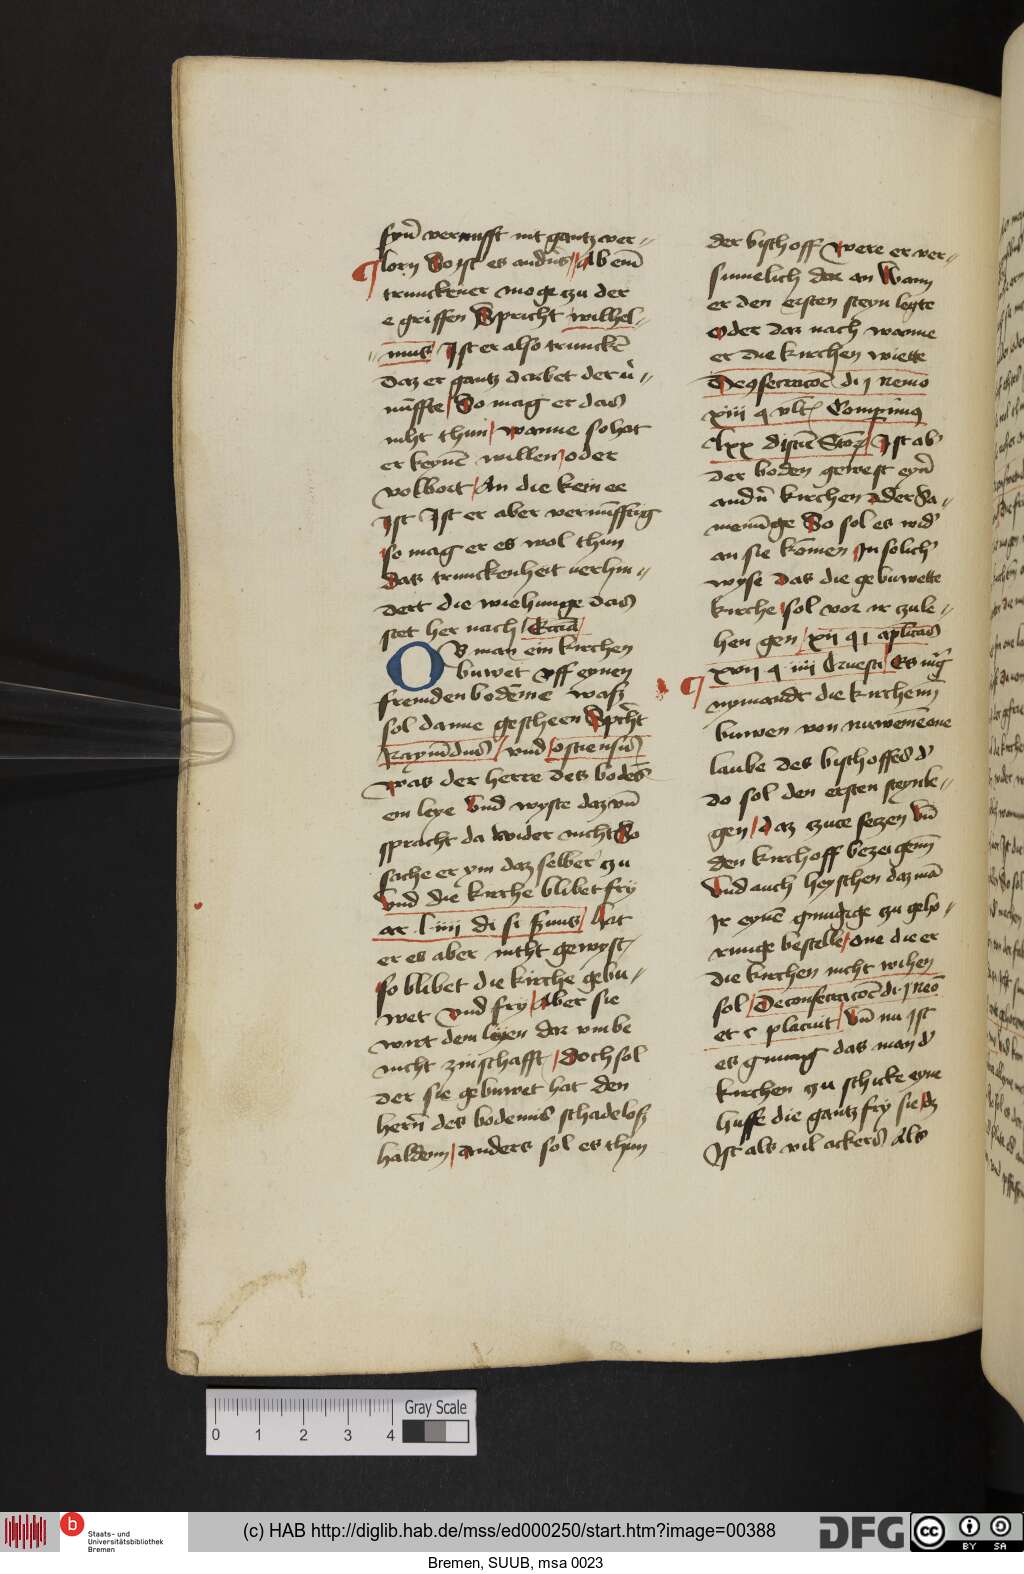 synē vernufft nit gantz ver-
lorn So ist es andʼs Ab einē
trunckener moge zu der
e griffen Spricht wilhel-
mus Ist er also trunckē
daz er gantz darbet der v̉-
nūffte So mag er das
nicht thun wanne so hat
er keynē willen oder
volbort An die kein ee
Ist Ist er aber vernūfftig
so mag er es wol thun
Das trunckenheit verhin-
dert die wiehunge das
stet her nach
OB man ein kirchen
buwet vff eynen
fremden bodēme wasz
sol danne gescheen Sprīcht
Raymūdus vnd ostiensis
was der herre des bodēs
ein leye vnd wyste daz vn̄
spracht da wider nicht So
sache er ym daz selber zu
vnd die kirche blibet fry
ar liiij di si s̄mus Hat
er es aber nicht gewyst
so blibet die kirche gebu-
wet vnd fry Aber sie
wirt dem leyen dar vmbe
nicht zinschafft doch sol
der sie gebuwet hat den
hern̄ des bodemis schadelosz
haldenn anders sol es thun
der bischoff were er ver-
sumelich dar an Wann
er den ersten steyn legte
oder dar nach wanne
er die kirchen wiette
De 9secracōe di j nemo
xiiij q vlt Compim9
lxx Ist ab̾
der boden gewest eyn̄
andʼn kirchen ader sa-
menūge So sol es wid̾
an sie komen In solich̾
wyse das die gebuwette
kirche sol vor ir zu le-
hen gen xij q j aplicas
xvij q iiij Es mg̾
nymandt die kirchenn
buwen von nuwem ane
laube des bischoffes d̾
do sol den ersten steyn le-
gen daz cruce setzen vn̄
den kirchoff bezeigenn
Vnd auch heyschen daz mā
Ir eynē gnugige zu geho-
runge bestelle one die er
die kirchen nicht wihen
sol De consecracōe di j neō
et c placuit vn̄ nu ist
es gnung das man d̾
kirchen zu schicke eyne
huffe die gantz fry sie dz
Ist als vil ackers als
0 1 2 3 4
Gray Scale
b Staats- und
Universitätsbibliothek
Bremen
(c) HAB http://diglib.hab.de/mss/ed000250/start.htm?image=00388
DFG
cc BY SA
Bremen, SUUB, msa 0023